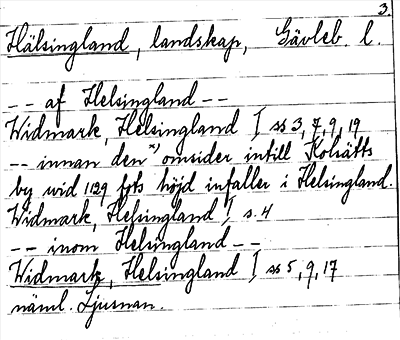 3.
Hälsingland, landskap, Gävleb. l.
-- af Helsingland --
Widmark, Helsingland I ss 3, 7, 9, 19
-- innan den *) omsider intill Kolsätts
by wid 1129 fots höjd infaller i Helsingland.
Widmark, Helsingland I s. 4
-- inom Helsingland --
Widmark, Helsingland I ss 5, 9, 17
näml. Ljusnan.